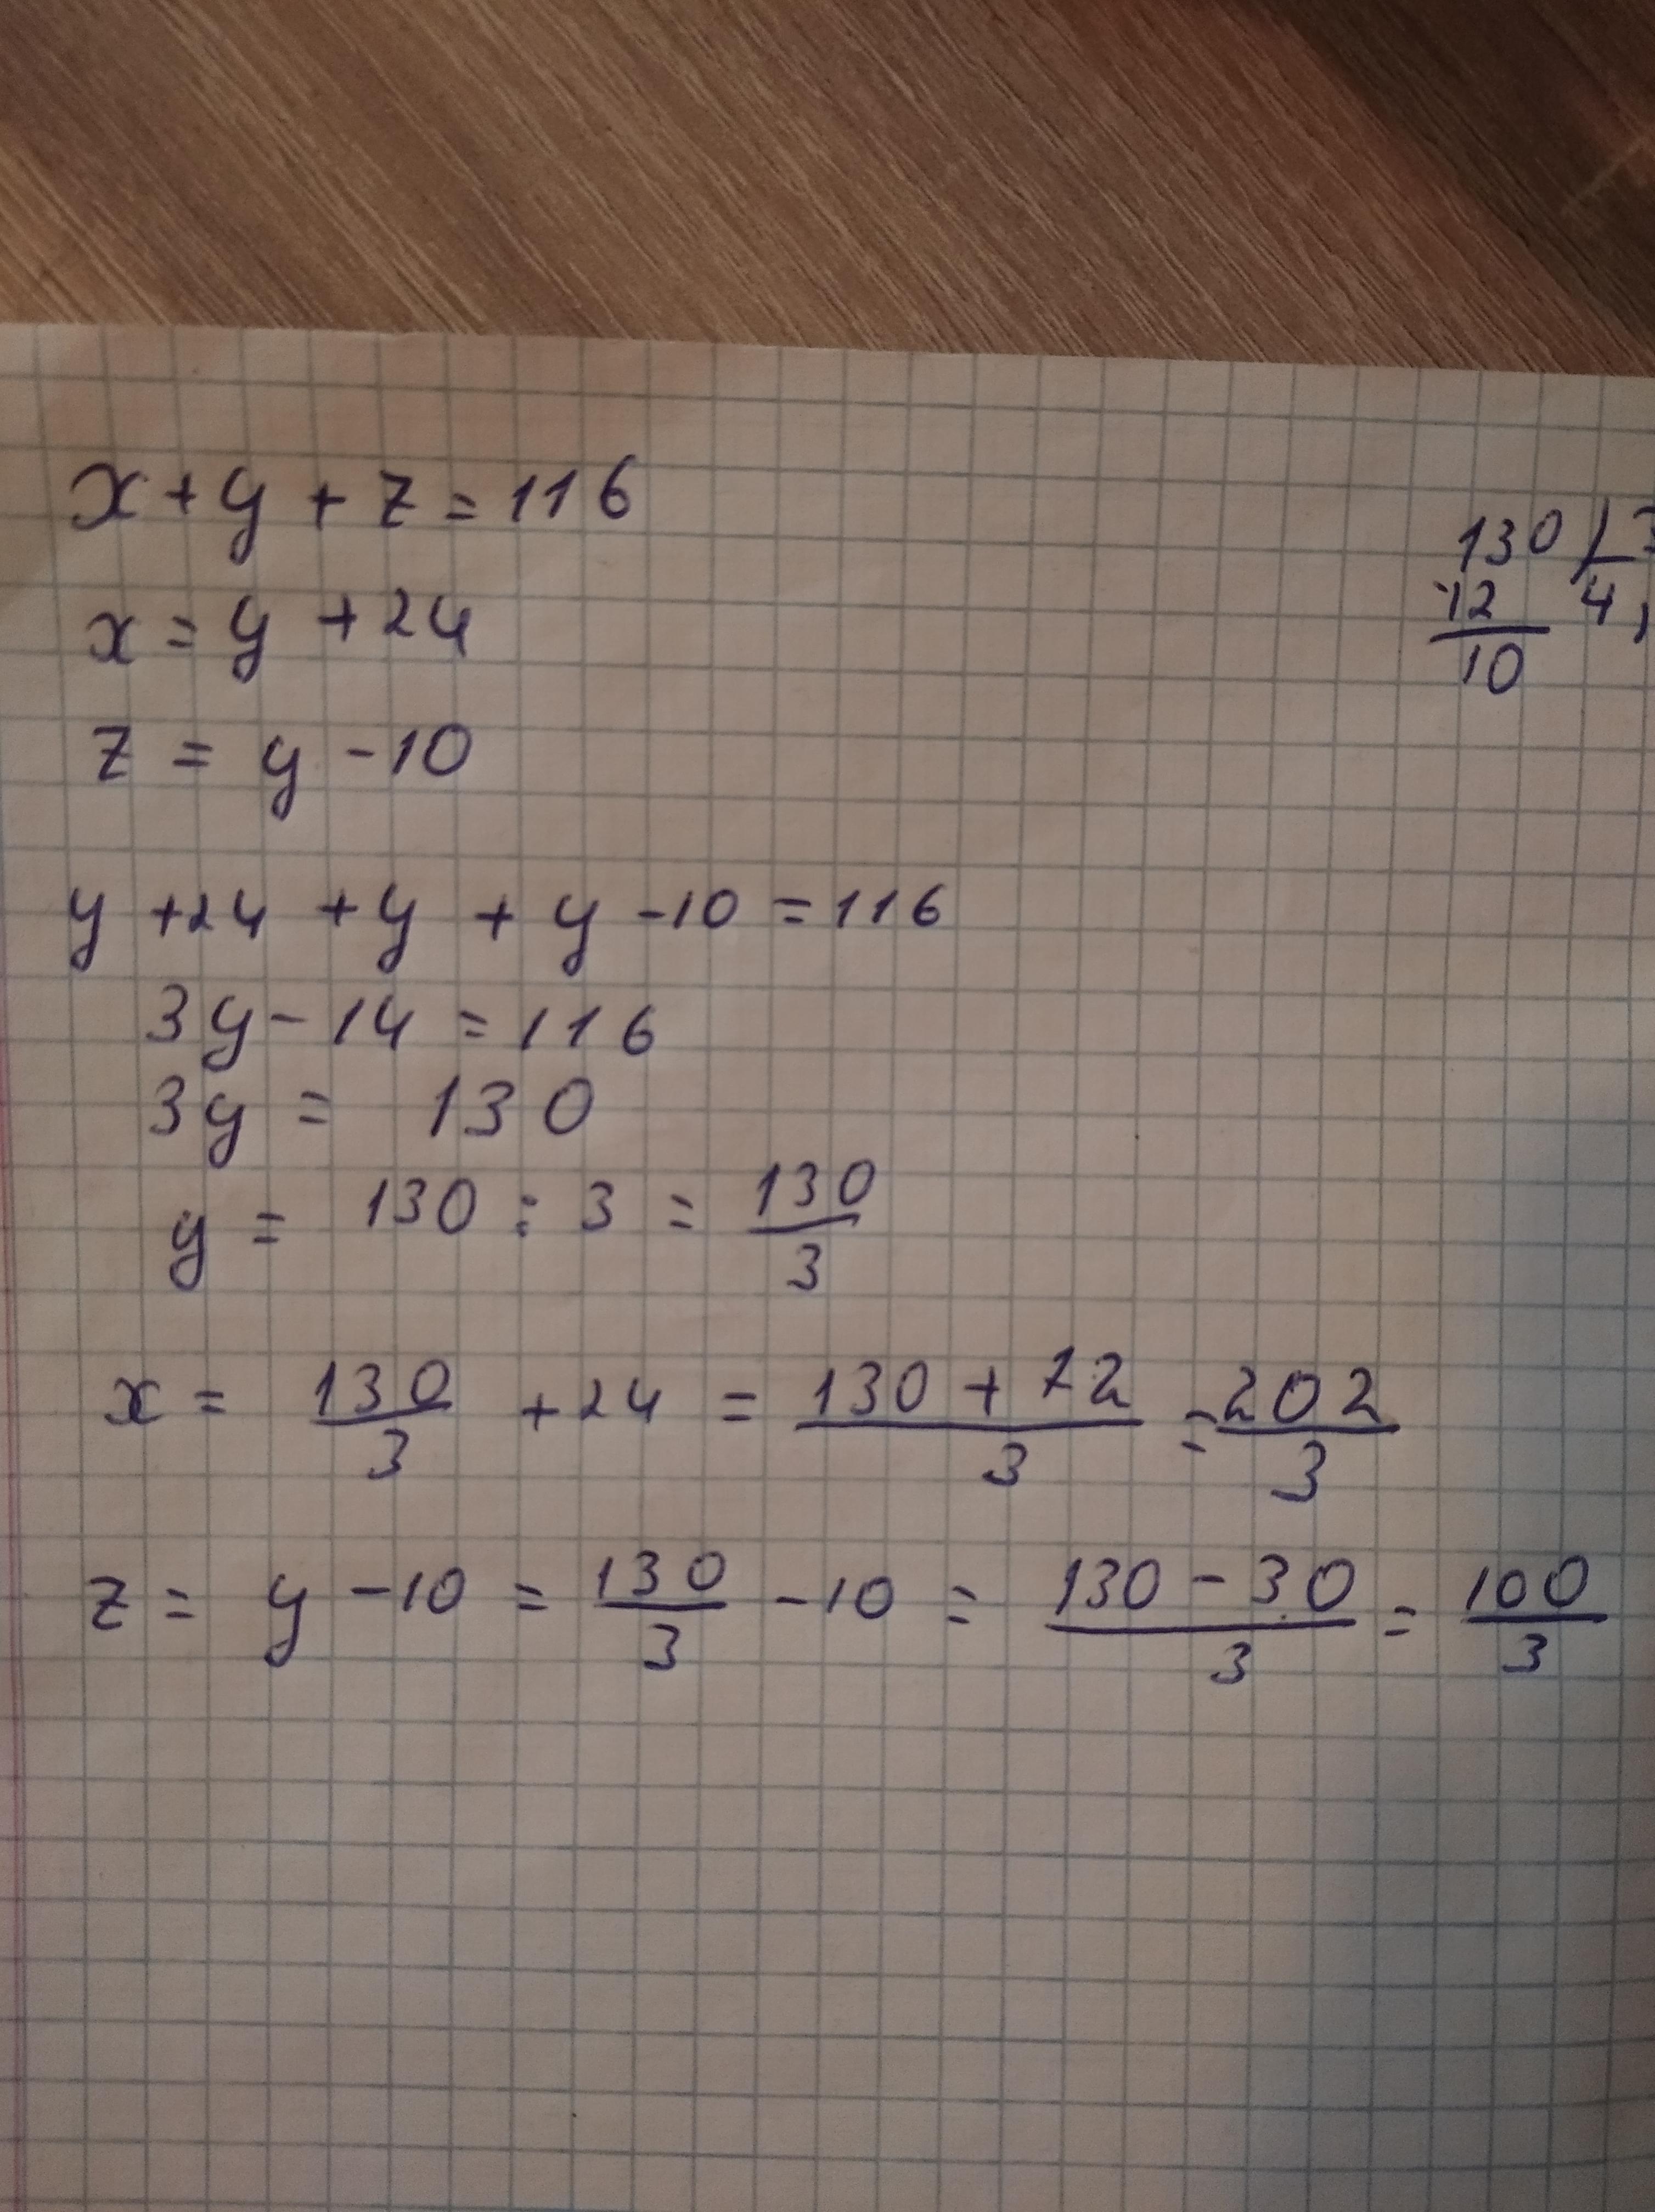 x + y + z = 116
x = y + 24
z = y - 10
y + 24 + y + y - 10 = 116
3y - 14 = 116
3y = 130
y = 130 : 3 = 130/3
x = 130/3 + 24 = (130 + 72)/3 = 202/3
z = y - 10 = 130/3 - 10 = (130 - 30)/3 = 100/3
130 | 3
-12 4,
10